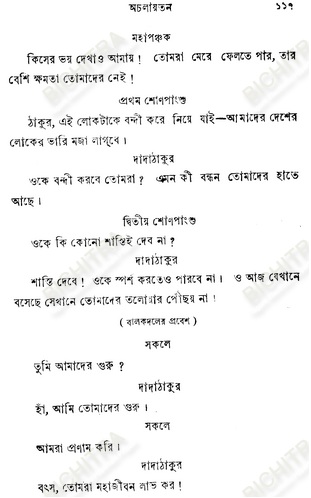 অচলায়তন ১১৭
মহাপঞ্চক
কিসের ভয় দেখাও আমায়! তোমরা মেরে ফেলতে পার, তার
বেশি ক্ষমতা তোমাদের নেই!
প্রথম শোণপাংশু
ঠাকুর, এই লোকটাকে বন্দী করে নিয়ে যাই—আমাদের দেশের
লোকের ভারি মজা লাগ্‌বে।
দাদাঠাকুর
ওকে বন্দী করবে তোমরা? এমন কী বন্ধন তোমাদের হাতে
আছে।
দ্বিতীয় শোণপাংশু
ওকে কি কোনো শাস্তিই দেব না?
দাদাঠাকুর
শাস্তি দেবে! ওকে স্পর্শ করতেও পারবে না। ও আজ যেখানে
বসেছে সেখানে তোমাদের তলোয়ার পৌঁছয় না!
(বালকদলের প্রবেশ)
সকলে
তুমি আমাদের গুরু?
দাদাঠাকুর
হাঁ, আমি তোমাদের গুরু।
সকলে
আমরা প্রণাম করি।
দাদাঠাকুর
বৎস, তোমরা মহাজীবন লাভ কর!
BICHITRA
BICHITRA
BICHITRA
BICHITRA